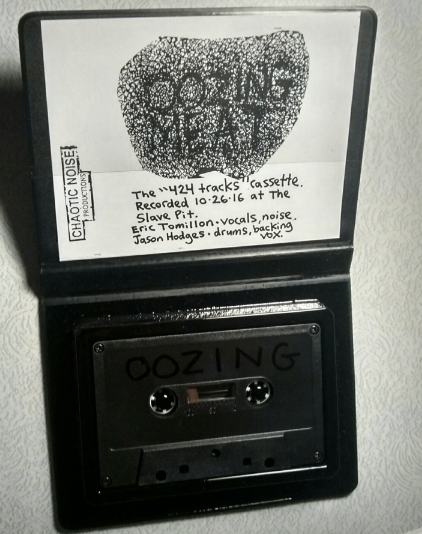 OOZING
MEAT
CHAOTIC NOISE
PRODUCTIONS
The "424 tracks" cassette.
Recorded 10·26·16 at The
Slave Pit.
Eric Tomillon·vocals, noise.
Jason Hodges·drums, backing
vox.
OOZING